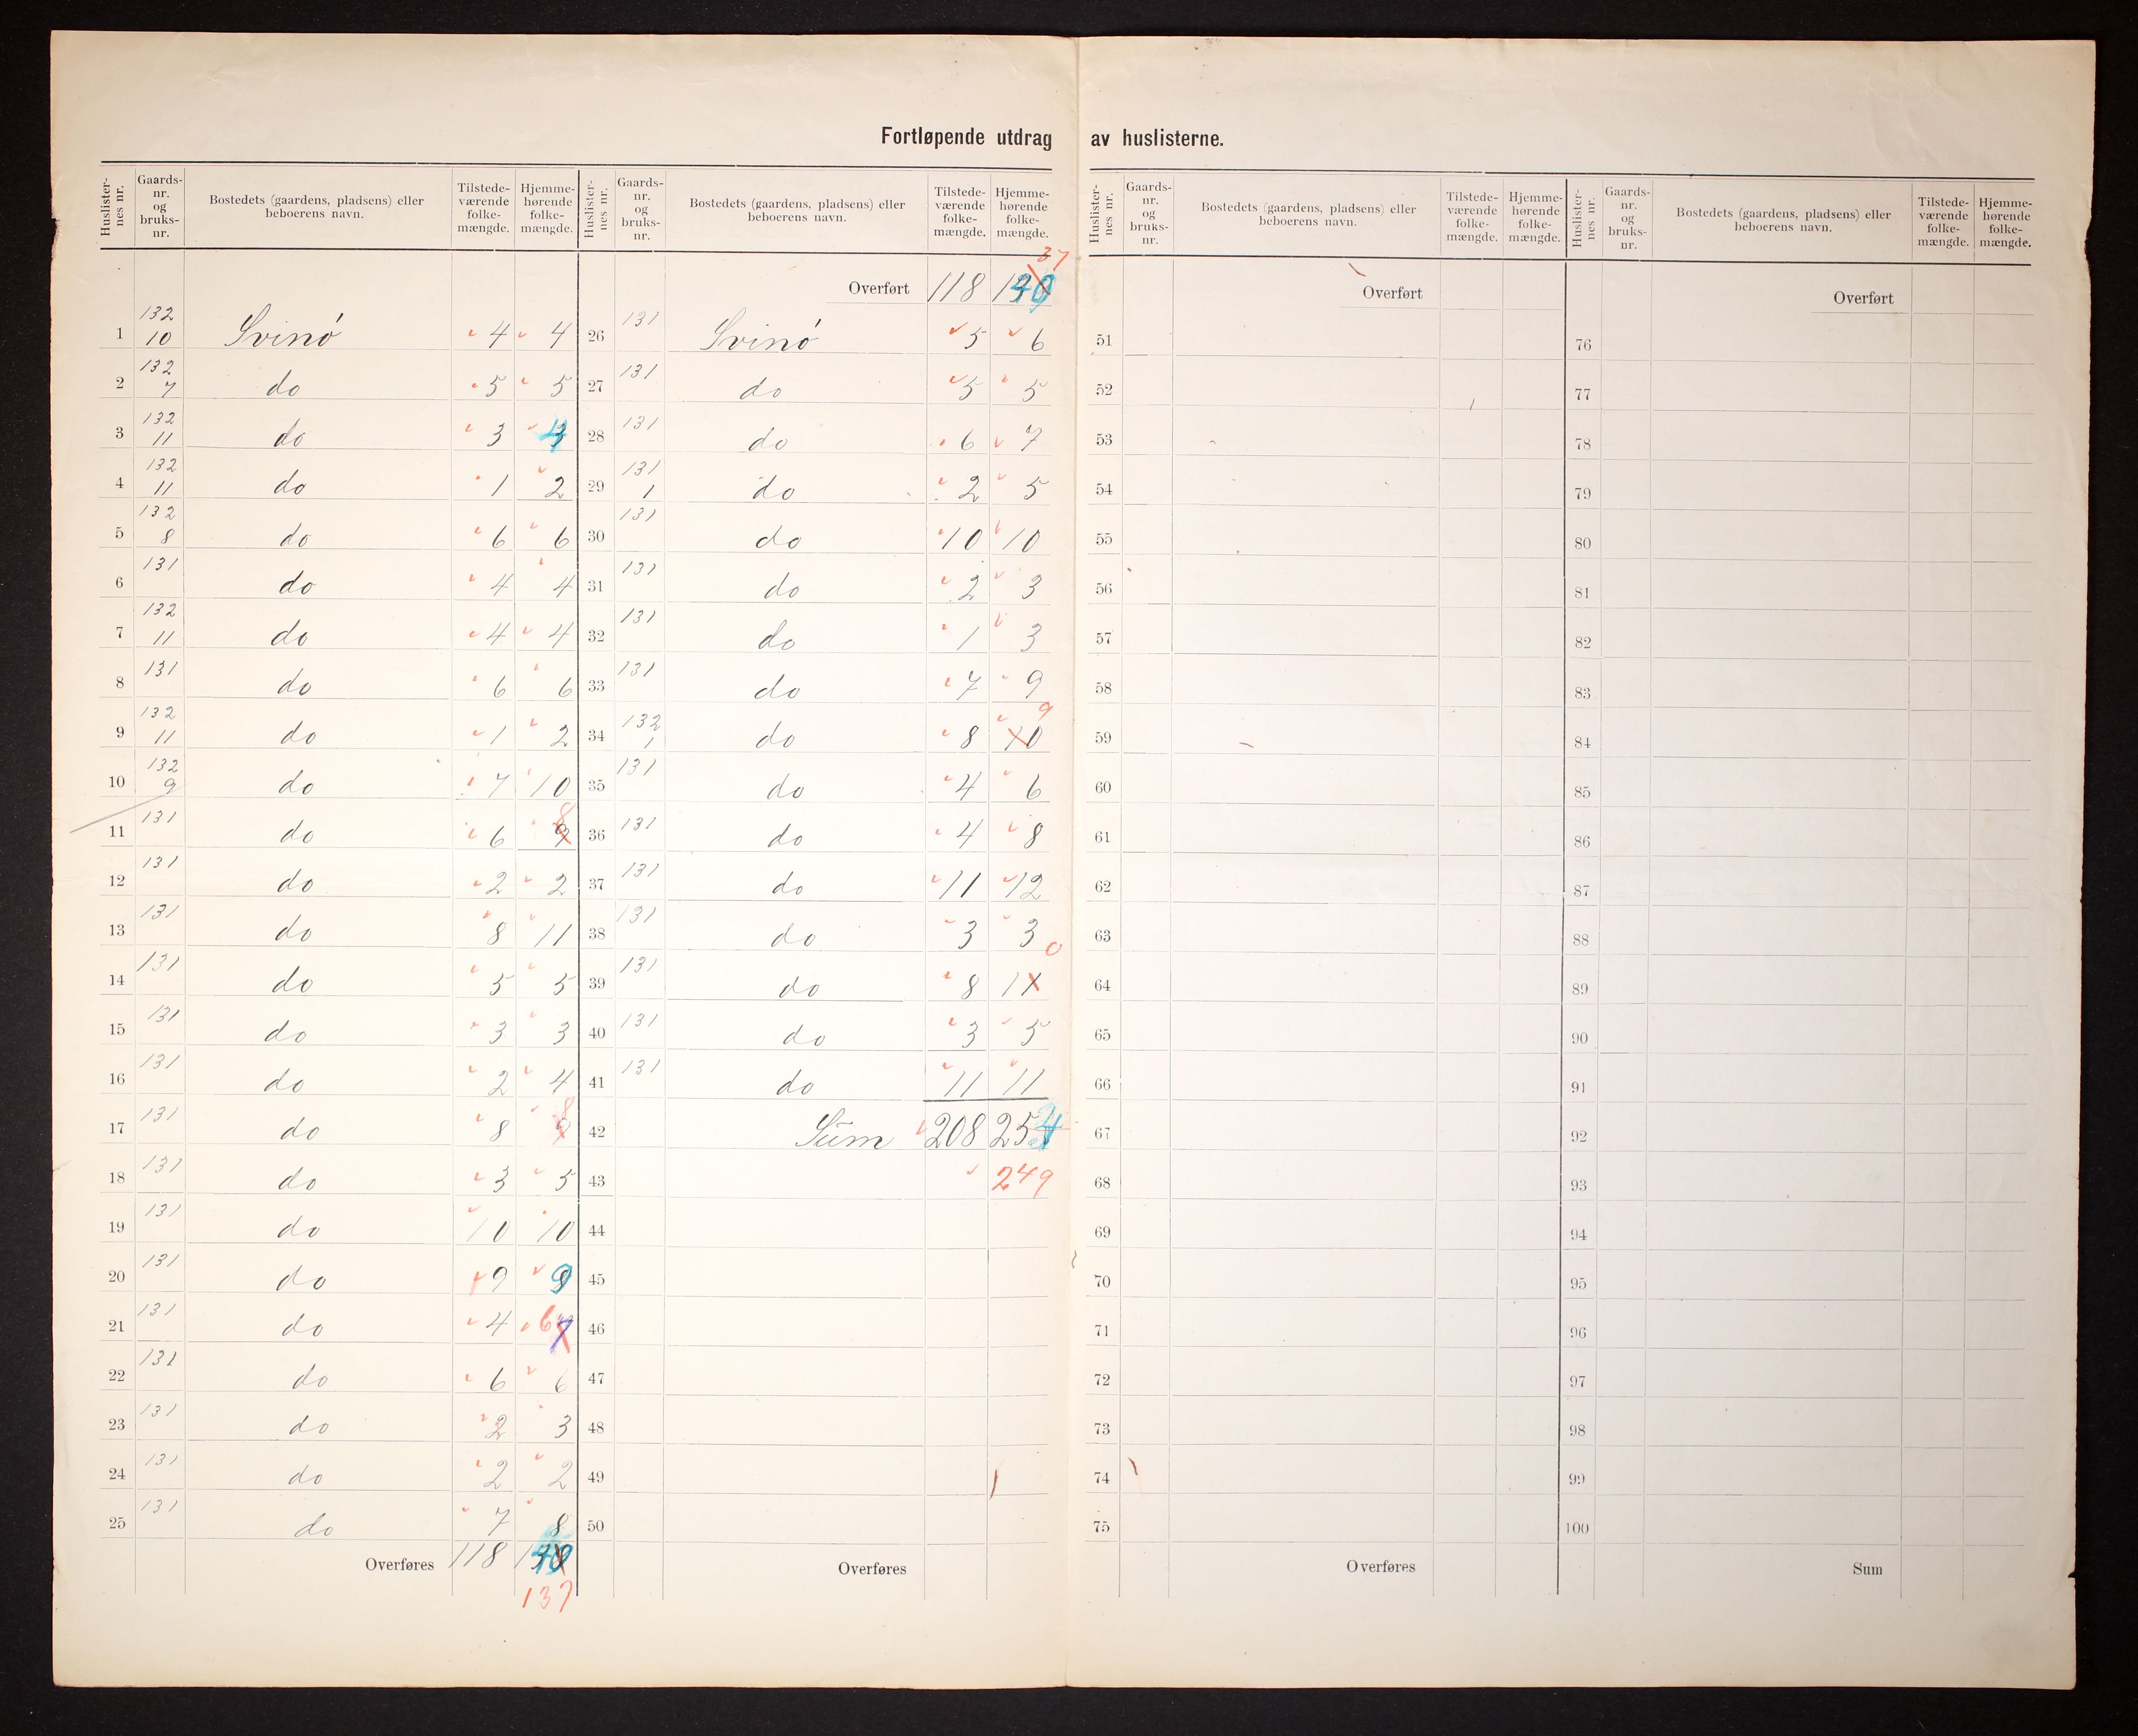 Fortløpende utdrag av huslisterne.
Huslister-nes nr. Gaards-nr. og bruks-nr. Bostedets (gaardens, pladsens) eller beboerens navn. Tilstede-værende folke-mængde. Hjemme-hørende folke-mængde.
1 132 10 Svinø 4 4
2 132 7 do 5 5
3 132 11 do 3
4 132 11 do 1 2
5 132 8 do 6 6
6 131 do 4 4
7 132 11 do 4 4
8 131 do 6 6
9 132 11 do 1 2
10 132 9 do 7 10
11 131 do 6 9 8
12 131 do 2 2
13 131 do 8 11
14 131 do 5 5
15 131 do 3 3
16 131 do 2 4
17 131 do 8 9 8
18 131 do 3 5
19 131 do 10 10
20 131 do 9 9
21 131 do 4 6 7
22 131 do 6 6
23 131 do 2 3
24 131 do 2 2
25 131 do 7 8
Overføres 118 140
137
Huslister-nes nr. Gaards-nr. og bruks-nr. Bostedets (gaardens, pladsens) eller beboerens navn. Tilstede-værende folke-mængde. Hjemme-hørende folke-mængde.
37
Overført 118 140
26 131 Svinø 5 6
27 131 do 5 5
28 131 do 6 7
29 131 1 do 2 5
30 131 do 10 10
31 131 do 2 3
32 131 do 1 3
33 131 do 7 9
34 132 1 do 8 10 9
35 131 do 4 6
36 131 do 4 8
37 131 do 11 12
38 131 do 3 3
39 131 do 8 0
40 131 do 3 5
41 131 do 11 11
42 Sum 208 254
43 249
44
45
46
47
48
49
50
Overføres
Huslister-nes nr. Gaards-nr. og bruks-nr. Bostedets (gaardens, pladsens) eller beboerens navn. Tilstede-værende folke-mængde. Hjemme-hørende folke-mængde.
Overført
51
52
53
54
55
56
57
58
59
60
61
62
63
64
65
66
67
68
69
70
71
72
73
74
75
Overføres
Huslister-nes nr. Gaards-nr. og bruks-nr. Bostedets (gaardens, pladsens) eller beboerens navn. Tilstede-værende folke-mængde. Hjemme-hørende folke-mængde.
Overført
76
77
78
79
80
81
82
83
84
85
86
87
88
89
90
91
92
93
94
95
96
97
98
99
100
Sum